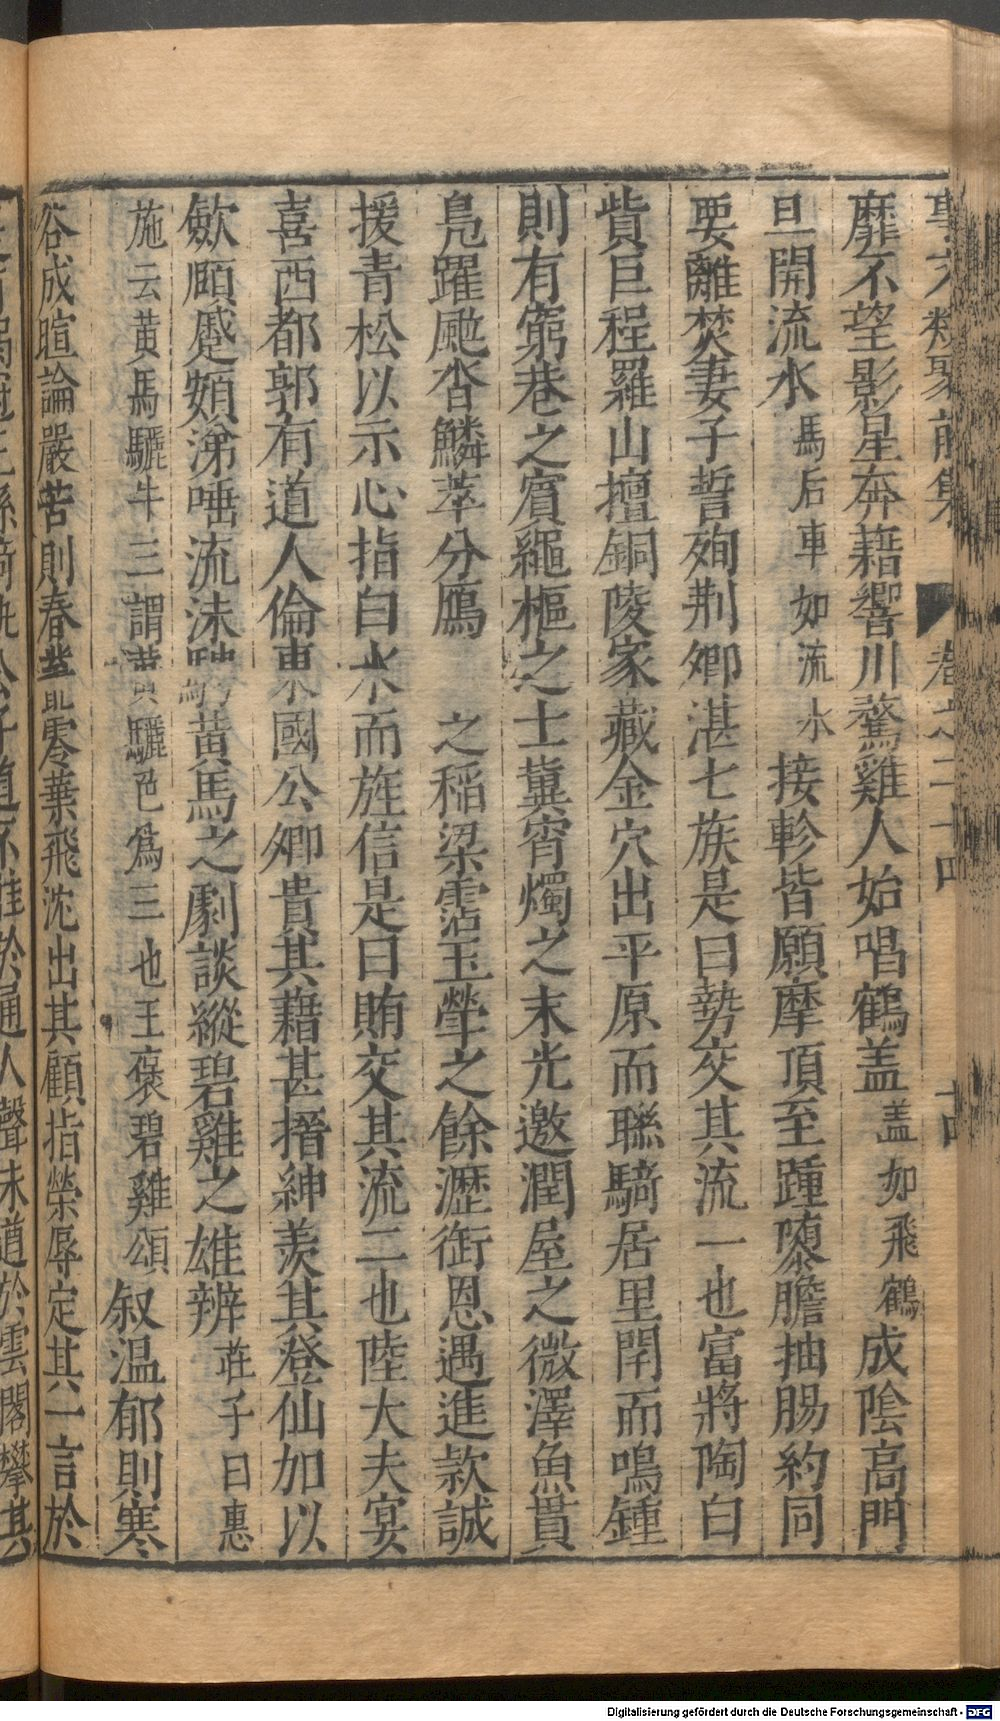 事文類聚前集 卷之二十四 十四
靡不望影星奔藉響川騖雞人始唱鶴盖盖如飛鶴成陰高門
旦開流水馬后車如流水接軫皆願摩頂至踵隳膽抽腸約同
要離焚妻子誓殉荆卿湛七族是曰勢交其流一也富將陶白
貲巨程羅山擅銅陵家藏金穴出平原而聯騎居里閈而鳴鍾
則有窮巷之賓繩樞之士冀宵燭之末光邀潤屋之微澤魚貫
鳧躍颭沓鱗萃分鴈之稻粱霑玉斝之餘瀝銜恩遇進款誠
援青松以示心指白水而旌信是曰賄交其流二也陸大夫宴
喜西都郭有道人倫東國公卿貴其藉甚搢紳羨其登仙加以
歛頤蹙頞涕唾流沫騁黄馬之劇談縱碧雞之雄辨莊子曰惠
施云黄馬驪牛三謂黄驪色爲三也王褒碧雞頌叙温郁則寒
谷成暄論嚴苦則春叢零葉飛沈出其顧指榮辱定其一言於
Digitalisierung gefördert durch die Deutsche Forschungsgemeinschaft - DFG